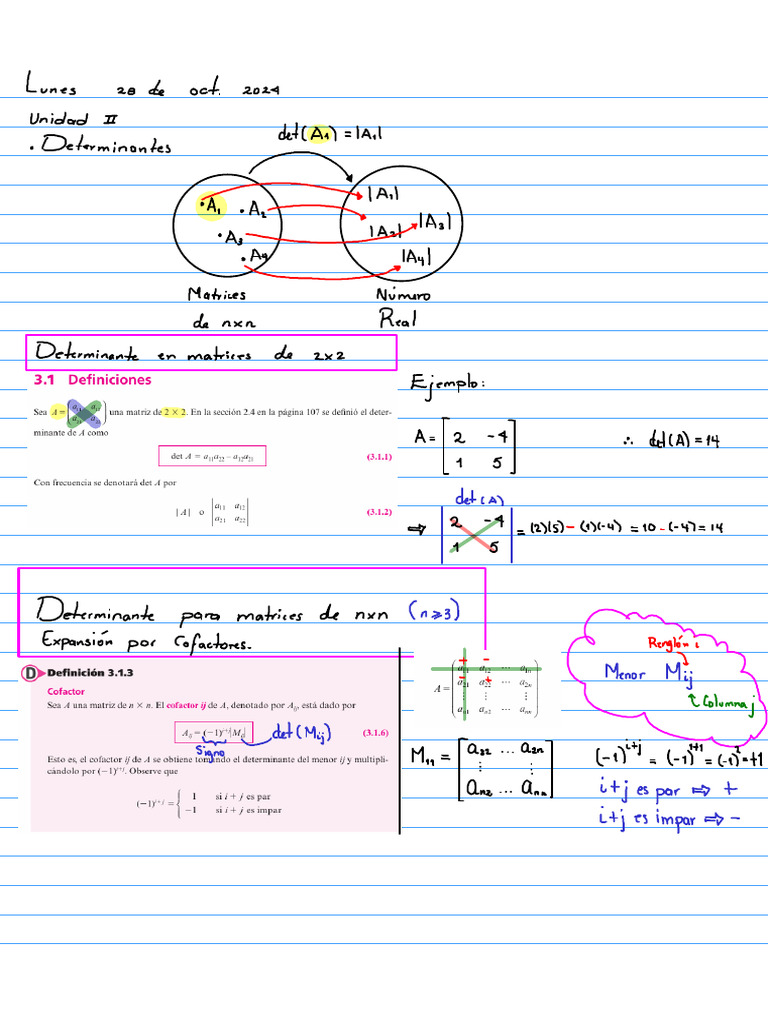 Lunes 28 de oct. 2024
Unidad II
• Determinantes
det(A₁) = |A₁|
•A₁ •A₂ •A₃ •A₄
|A₁| |A₂| |A₃| |A₄|
Matrices de nxn
Número Real
Determinante en matrices de 2x2
3.1 Definiciones
Sea A = (a₁₁ a₁₂ / a₂₁ a₂₂) una matriz de 2 × 2. En la sección 2.4 en la página 107 se definió el deter-
minante de A como
det A = a₁₁a₂₂ – a₁₂a₂₁ (3.1.1)
Con frecuencia se denotará det A por
|A| o |a₁₁ a₁₂ / a₂₁ a₂₂| (3.1.2)
Ejemplo:
A = [2 -4 / 1 5] ∴ det(A) = 14
det(A)
⇒ |2 -4 / 1 5| = (2)(5) - (1)(-4) = 10 - (-4) = 14
Determinante para matrices de nxn (n≥3)
Expansión por Cofactores.
D Definición 3.1.3
Cofactor
Sea A una matriz de n × n. El cofactor ij de A, denotado por Aᵢⱼ, está dado por
Aᵢⱼ = (–1)ⁱ⁺ʲ|Mᵢⱼ| (3.1.6)
Signo
det(Mij)
Esto es, el cofactor ij de A se obtiene tomando el determinante del menor ij y multipli-
cándolo por (–1)ⁱ⁺ʲ. Observe que
(–1)ⁱ⁺ʲ = { 1 si i + j es par
–1 si i + j es impar
+ - - +
A = (a₁₁ a₁₂ ⋯ a₁ₙ / a₂₁ a₂₂ ⋯ a₂ₙ / ⋮ ⋮ ⋮ / aₙ₁ aₙ₂ ⋯ aₙₙ)
Renglón i
Menor Mij
Columna j
M₁₁ = [a₂₂ ... a₂ₙ / ⋮ ⋮ / aₙ₂ ... aₙₙ]
(-1)ⁱ⁺ʲ = (-1)¹⁺¹ = (-1)² = +1
i+j es par ⇒ +
i+j es impar ⇒ -